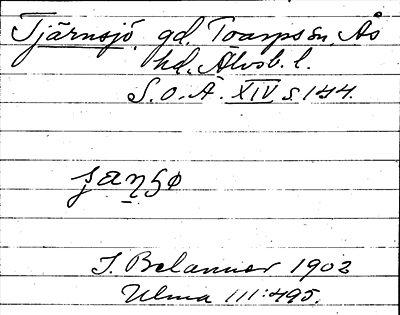 Tjärnsjö, gd, Toarps sn, Ås
hd, Älvsb. l.
S.O.Ä. XIV s. 144.
J. 1902
Ulma 111:495.